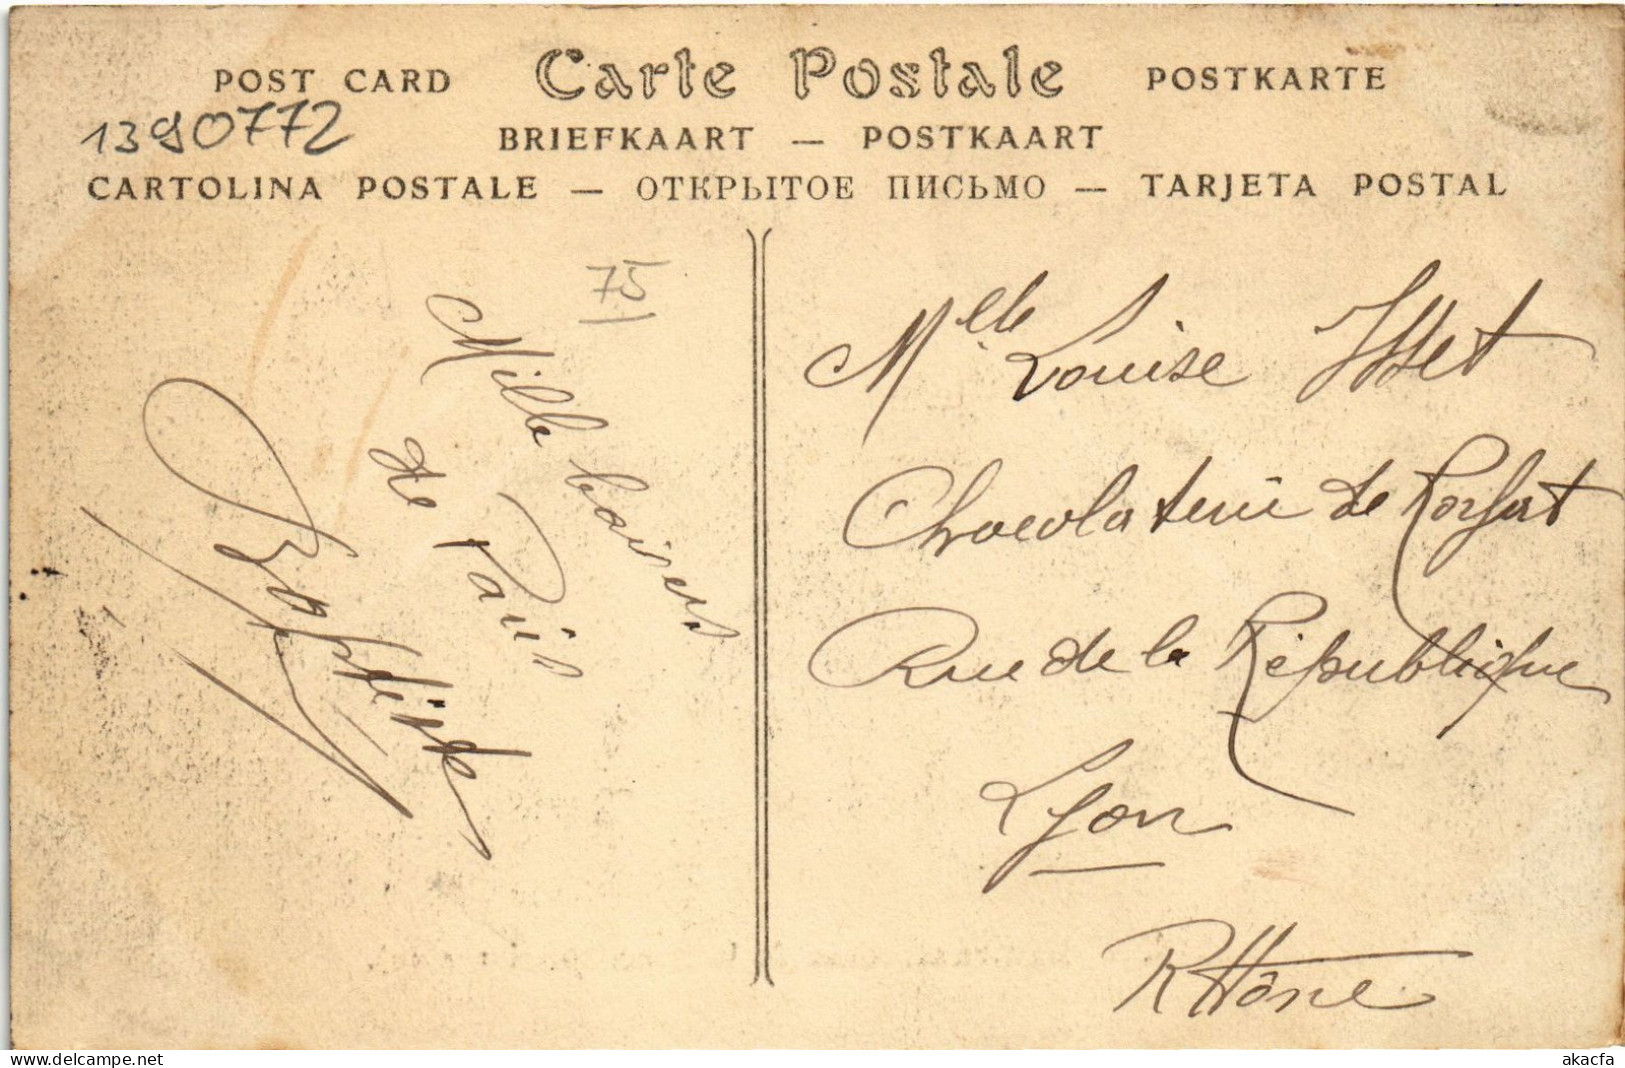 POST CARD Carte Postale POSTKARTE
1390772
BRIEFKAART — POSTKAART
CARTOLINA POSTALE — ОТКРЫТОЕ ПИСЬМО — TARJETA POSTAL
75
Mille baisers
de Paris
Baptiste
Mlle Louise Isset
Chocolaterie de Ronfort
Rue de la République
Lyon
Rhône
delcampe.net
akacfa